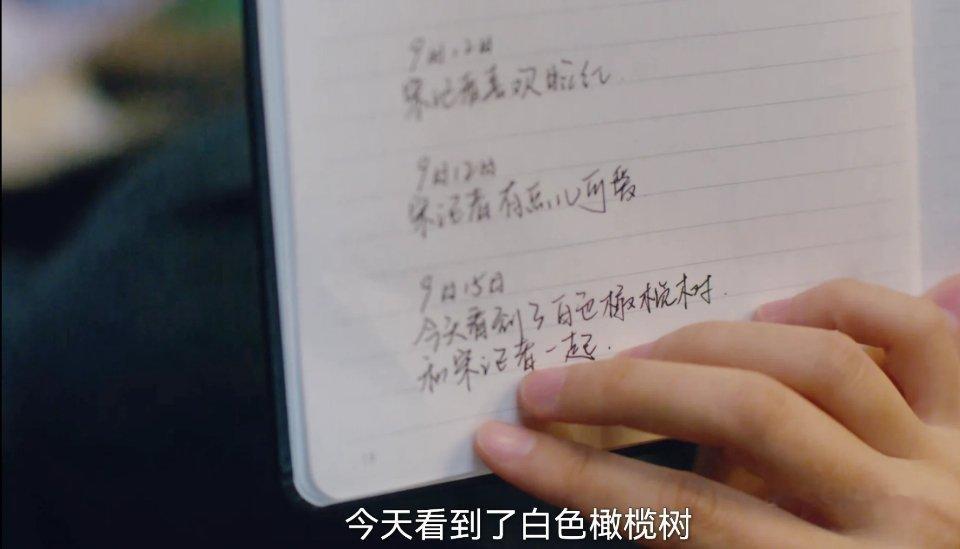 9月12日
宋记者喜欢脸红.
9月12日
宋记者有点儿可爱
9月15日
今天看到了白色橄榄树.
和宋记者一起.
今天看到了白色橄榄树